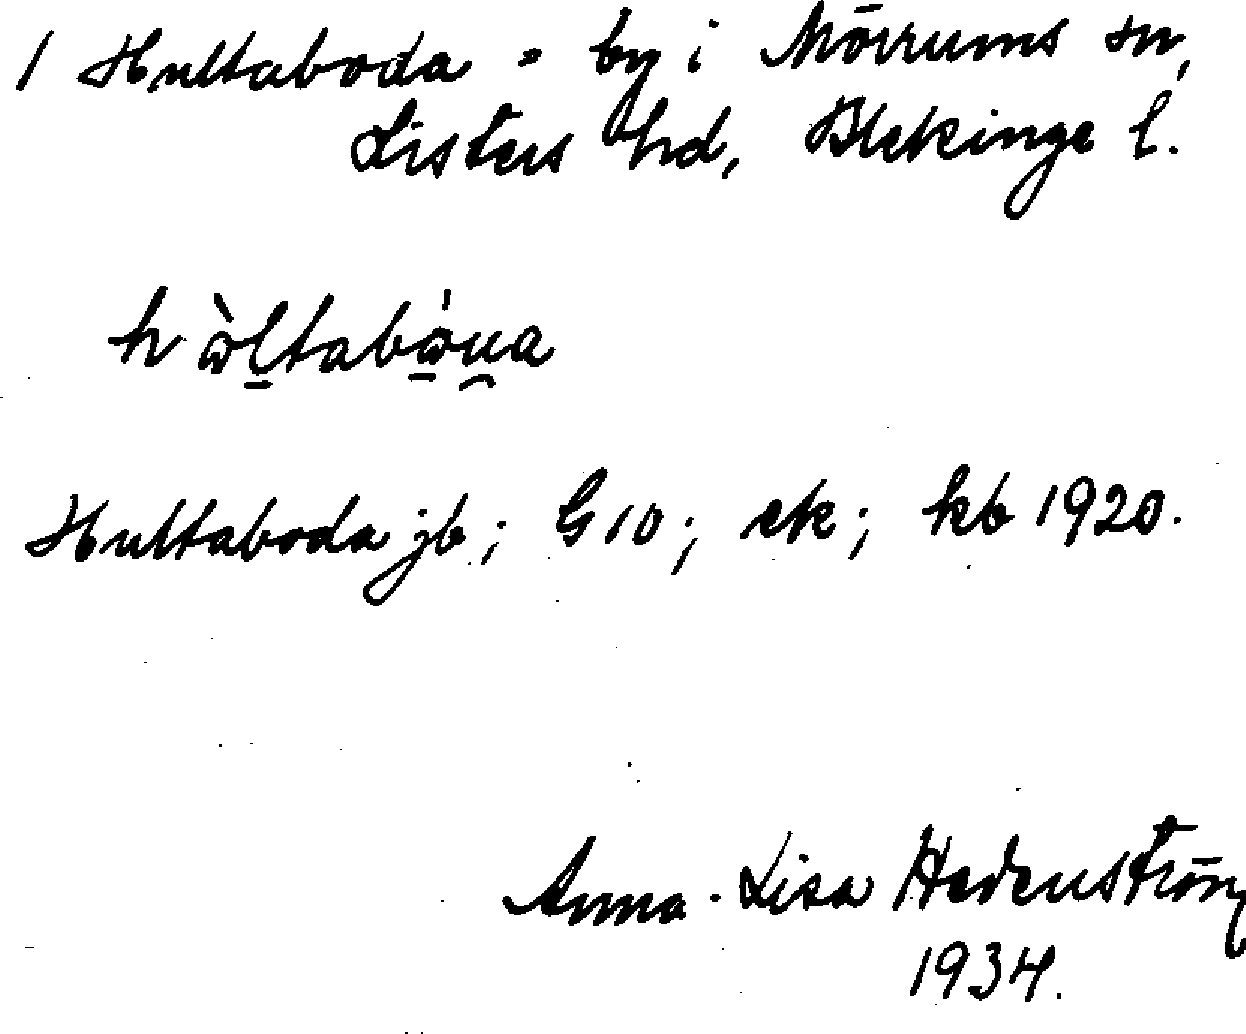 1 Hultaboda - by i Mörrums sn,
Listers hd, Blekinge l.
hὼḻtabώ̱u̯a
Hultaboda jb; G 10; ek; kb 1920.
Anna-Lisa Hedenström
1934.